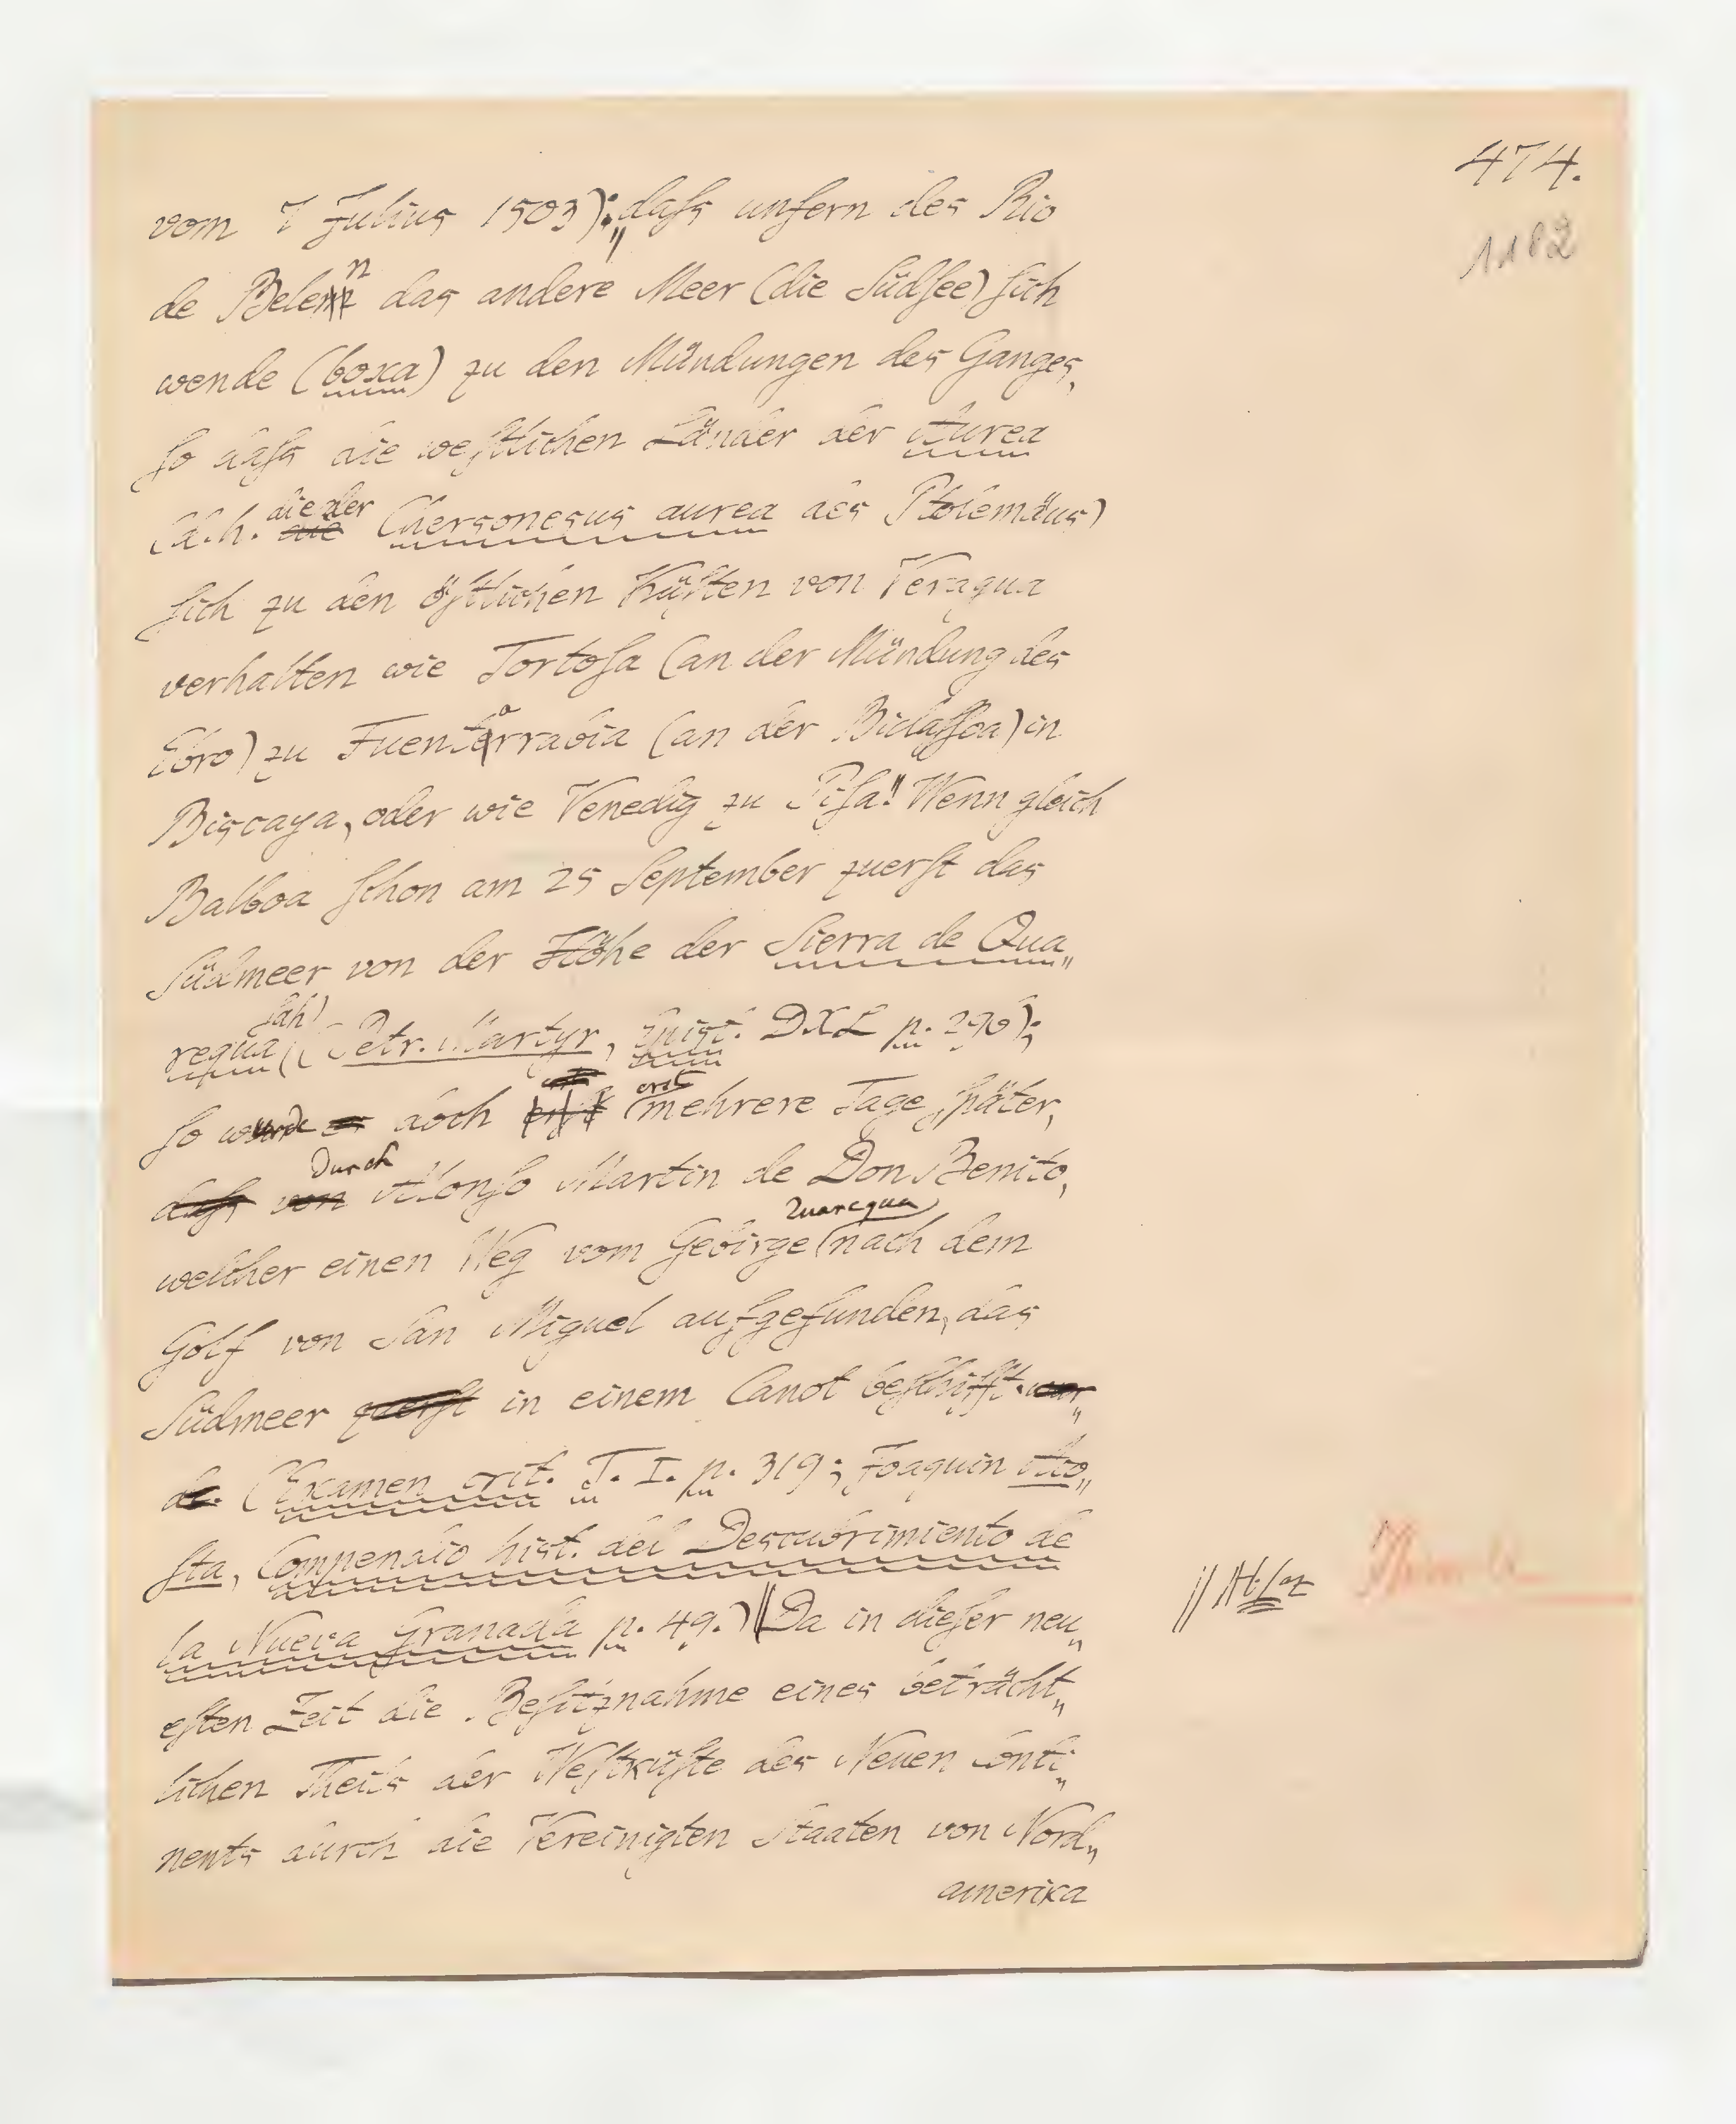 474.
1182
vom 7 Julius 1503): „daſs unfern des Rio
de Belen das andere Meer (die Südſee) ſich
wende (boxa) zu den Mündungen des Ganges,
ſo daſs die weſtlichen Länder der Aurea
(d. h. die der Chersonesus aurea des Ptolemäus)
ſich zu den öſtlichen Küſten von Veragua
verhalten wie Tortoſa (an der Mündung des
Ebro) zu Fuentarrabia (an der Bidaſſoa) in
Biscaya, oder wie Venedig zu Piſa!" Wenn gleich
Balboa ſchon am 25 September zuerſt das
Südmeer von der Höhe der Sierra de Qua„
requa ſah (Petr. Martyr, Epist. DXL p. 296);
ſo wurde doch erst mehrere Tage ſpäter,
durch Alonſo Martin de Don Benito,
welcher einen Weg vom Gebirge Quarequa nach dem
Golf von San Miguel aufgefunden, das
Südmeer in einem Canot beſchifft.
(Examen crit. T. I. p. 319; Joaquin Aco„
ſta, Compendio hist. del Descubrimiento de
la Nueva Granada p. 49.) || Da in dieſer neu„
eſten Zeit die Beſitznahme eines beträcht„
lichen Theils der Weſtküſte des Neuen Conti„
nents durch die Vereinigten Staaten von Nord„
amerika